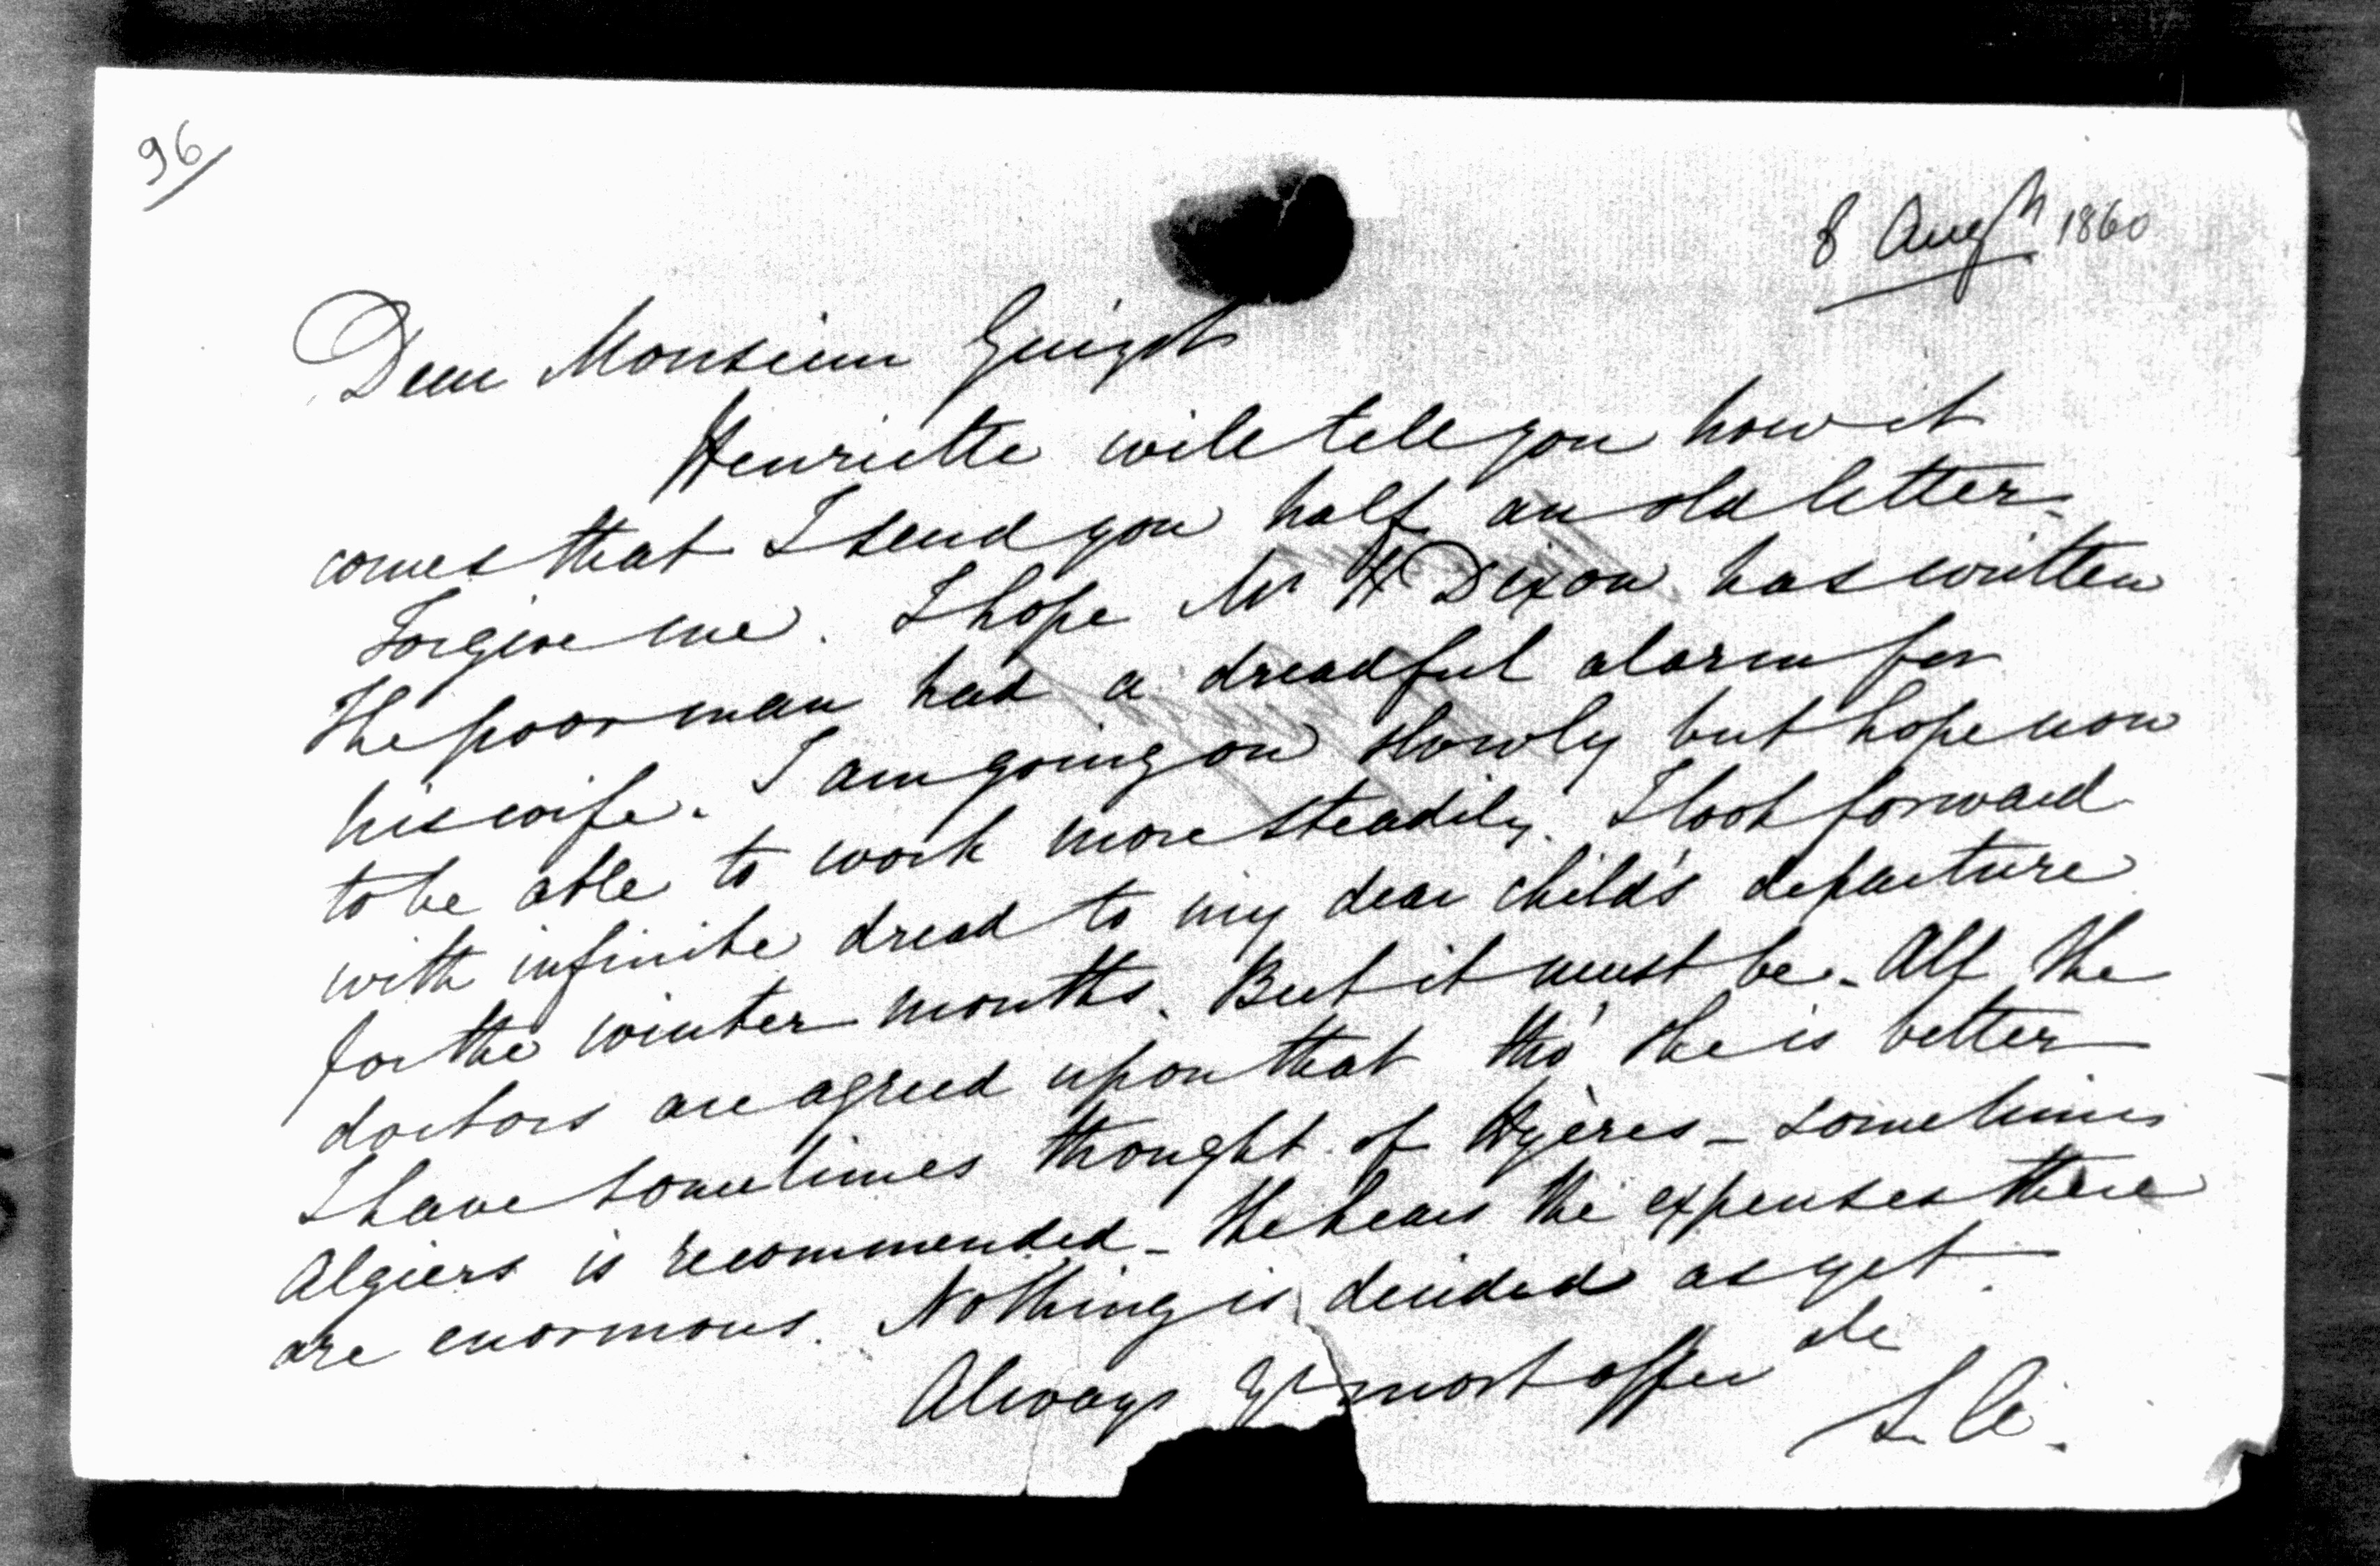 96
8 Augst 1860
Dear Monsieur Guizot
Henriette will tell you how it
comes that I send you half an old letter.
Forgive me. I hope Mr H Dixon has written
The poor man had a dreadful alarm for
his wife. I am going on slowly but hope now
to be able to work more steadily. I look forward
with infinite dread to my dear child's departure
for the winter months. But it must be. All the
doctors are agreed upon that tho' she is better
I have sometimes thought of Hyères – sometimes
Algiers is recommended – She hears the expenses there
are enormous. Nothing is decided as yet.
Always yr most affec
S. A.